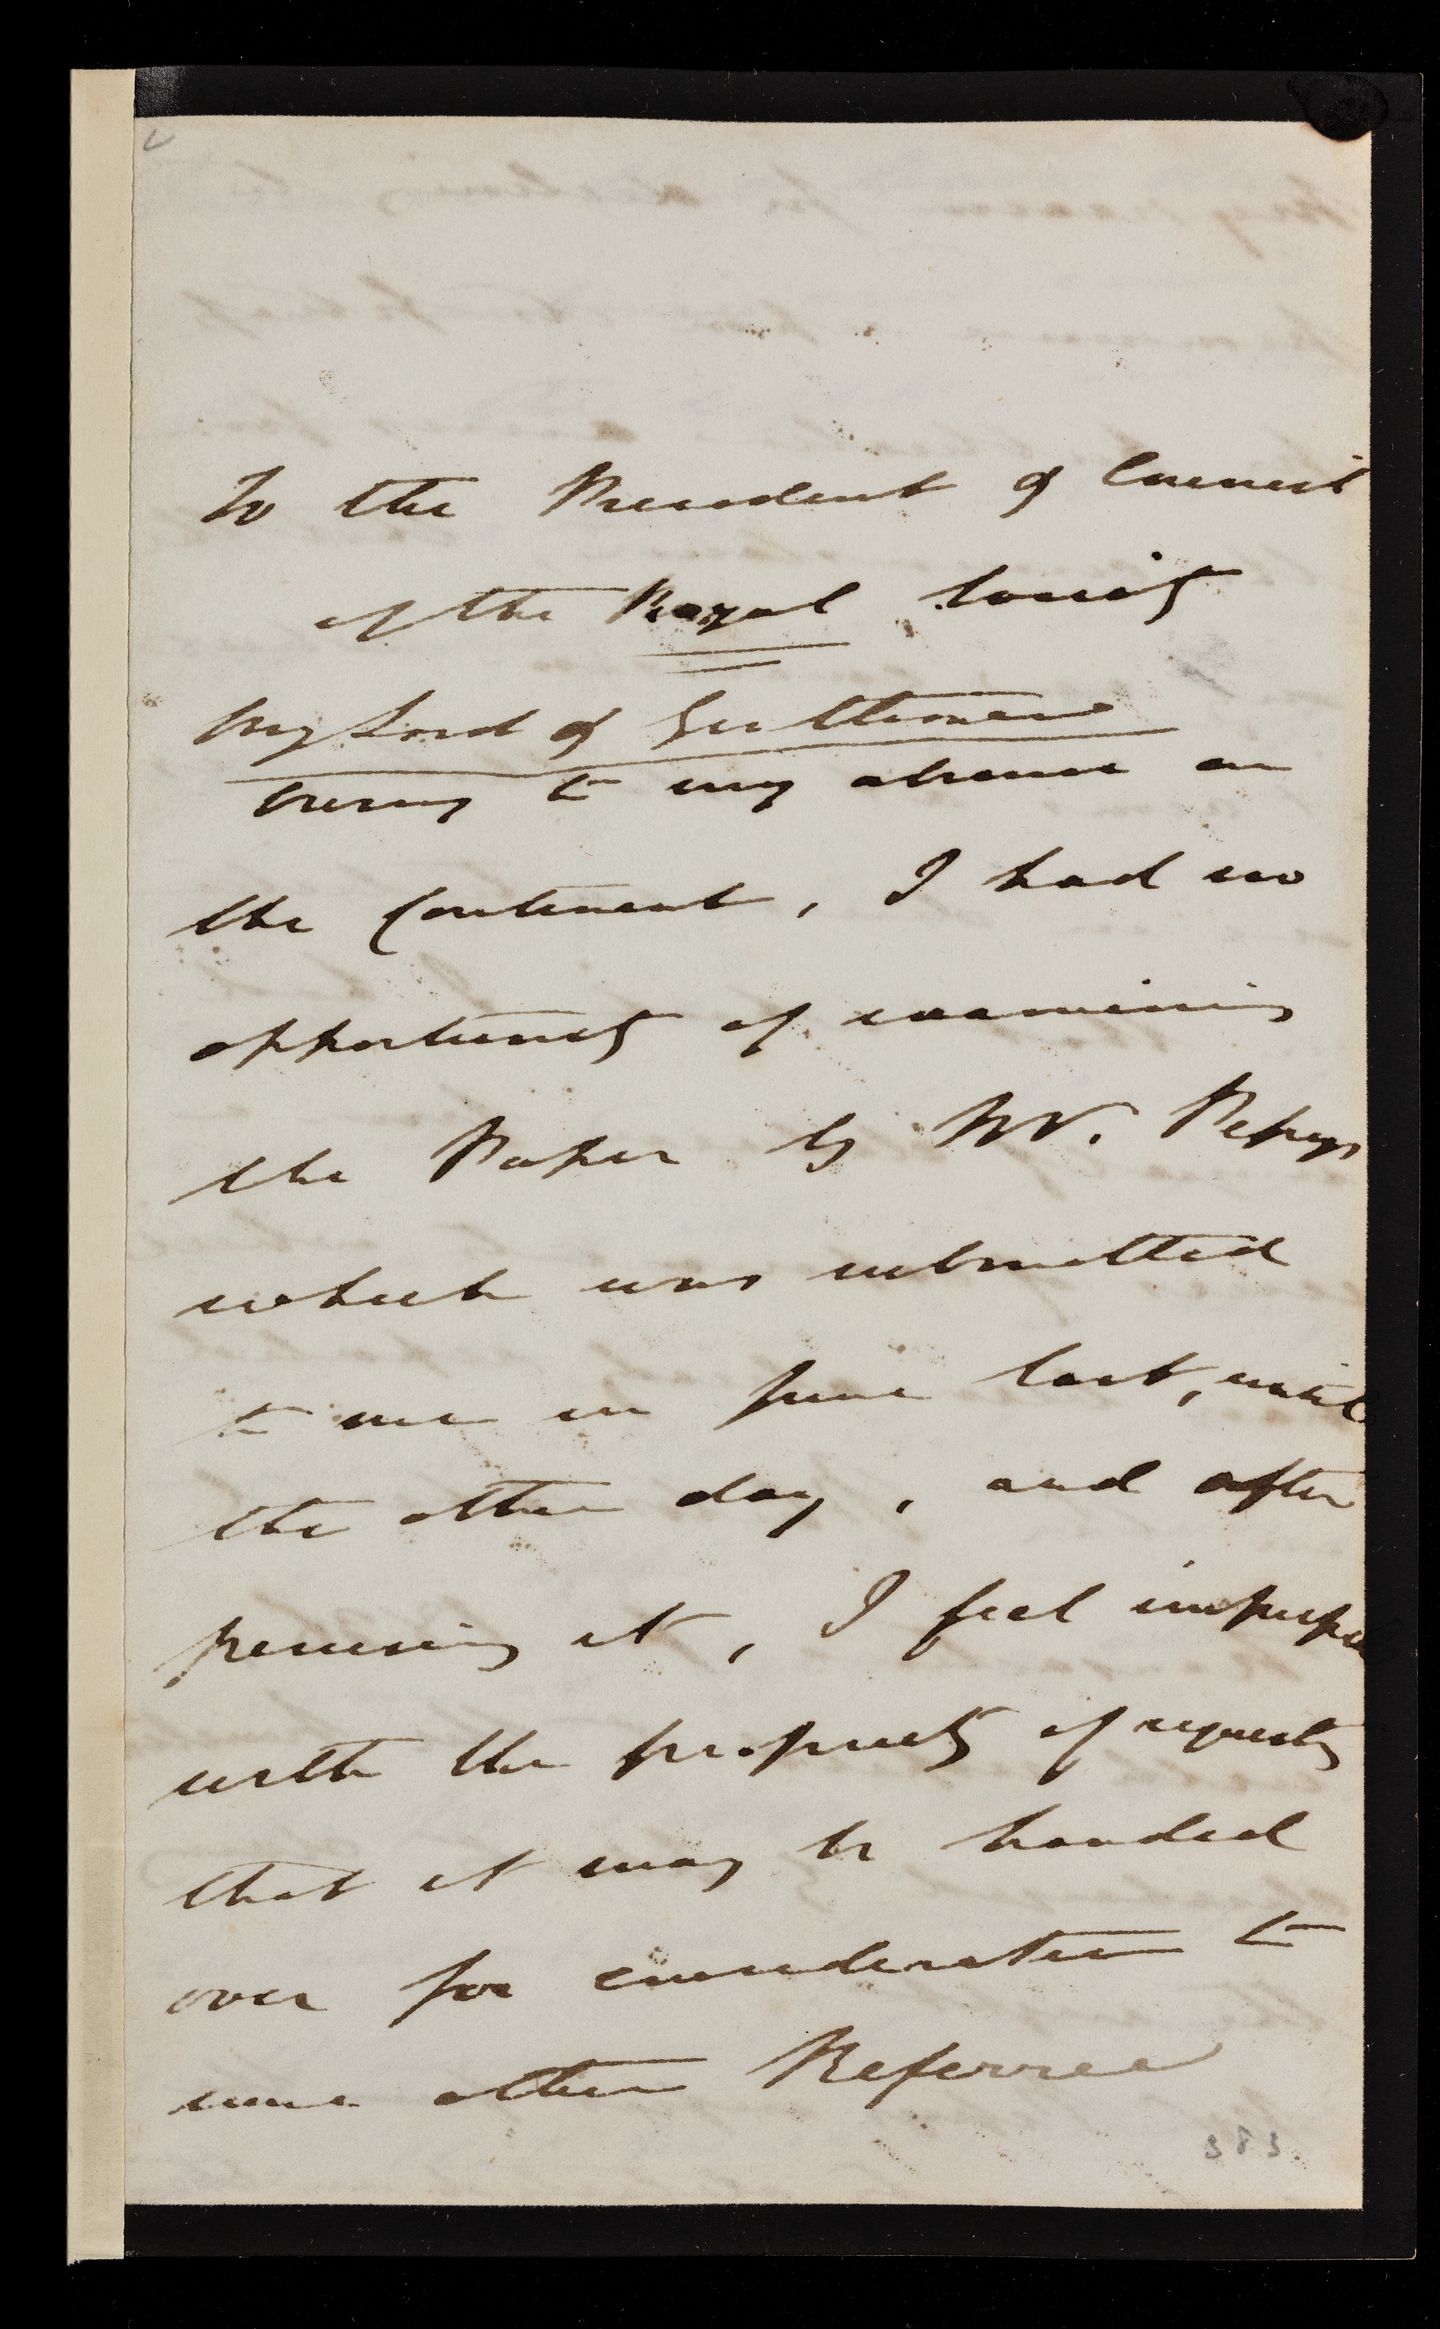 To the President & Council
of the Royal Society
My Lord & Gentlemen
Owing to my absence on
the Continent, I had no
opportunity of examining
the Paper by Mr. Pepys
which was submitted
to me in June last, until
the other day, and after
perusing it, I feel
with the propriety of requesting
that it may be handed
over for consideration to
some other Referree
383